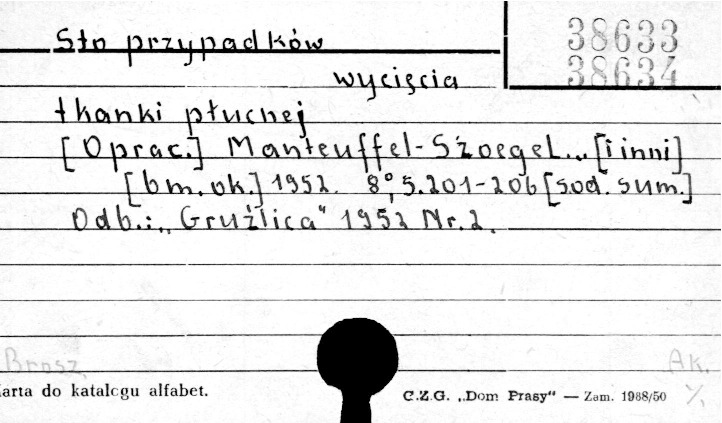 Sto przypadków
38633
38634
wycięcia
tkanki płucnej
[Oprac.] Manteuffel-Szoegel... [i inni]
[bm. ok.] 1952. 8°, s. 201-206 [sod. sum.]
Odb.: „Gruźlica" 1952 Nr. 2.
Brosz
Ak.
Karta do katalogu alfabet.
C.Z.G. „Dom Prasy" — Zam. 1988/50